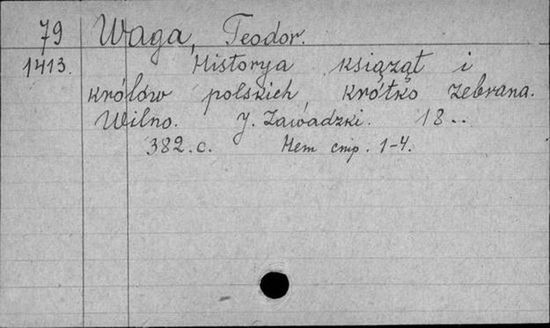 79 Waga, Teodor.
1413. Historya książąt i
królów polskich, krótko zebrana.
Wilno. J. Zawadzki. 18..
382.c. Нет стр. 1-4.